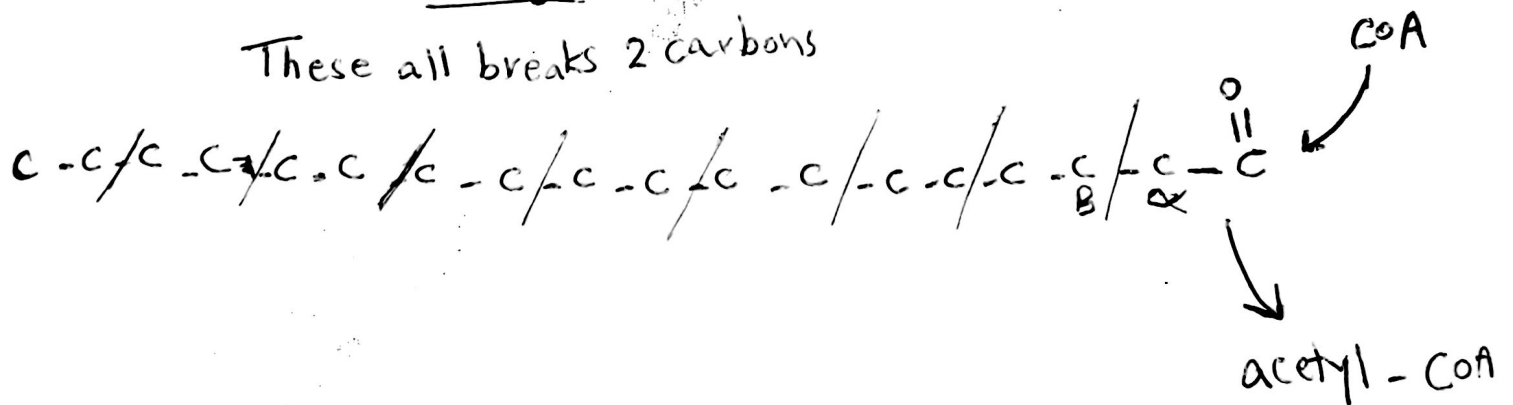 These all breaks 2 carbons
CoA
O
||
C-C/C-C-/C-C/C-C/-C-C/-C-C/-C-C/-C-C/-C-C
B α
acetyl-CoA